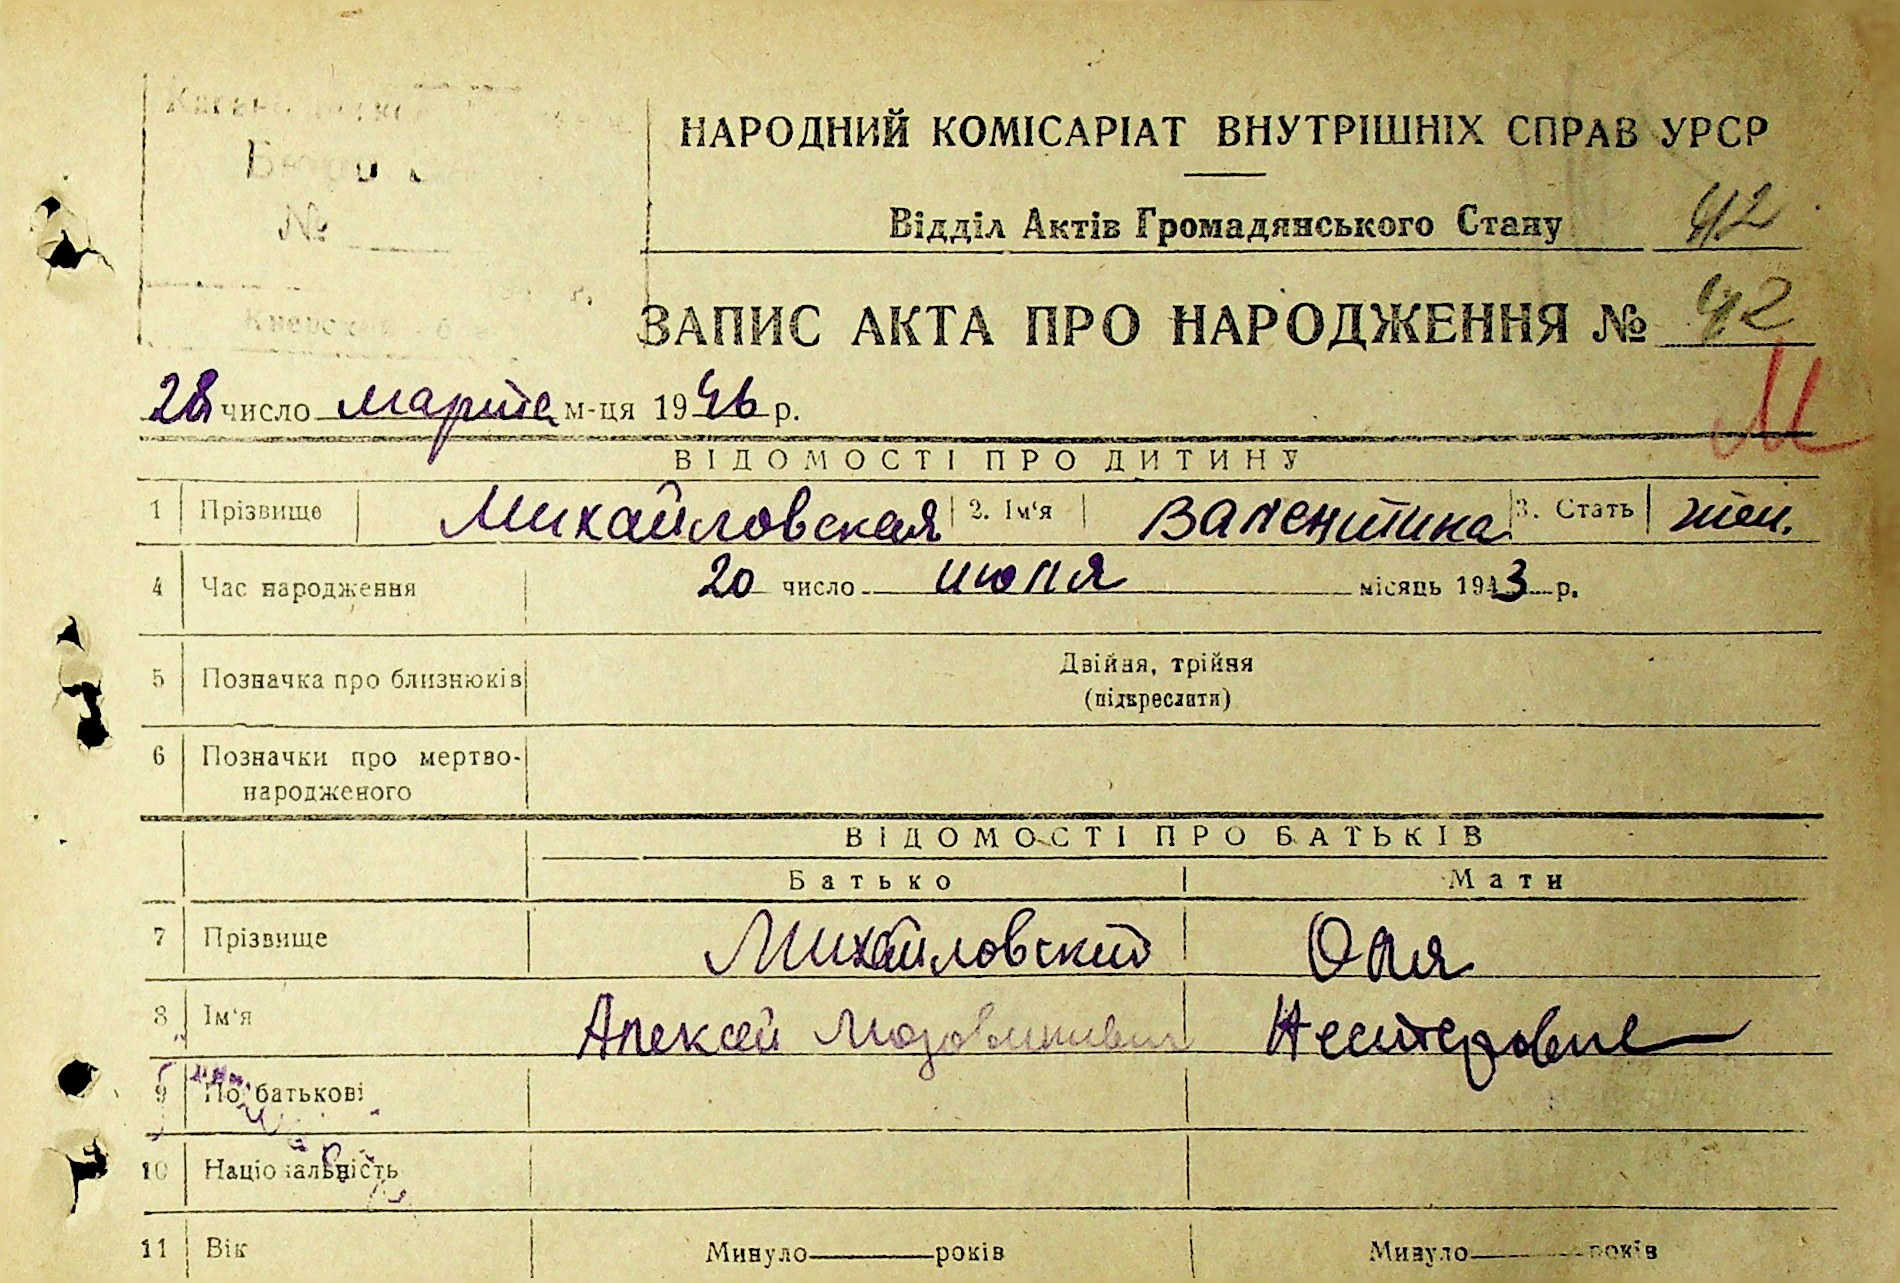 №
НАРОДНИЙ КОМІСАРІАТ ВНУТРІШНІХ СПРАВ УРСР
Відділ Актів Громадянського Стану 42
ЗАПИС АКТА ПРО НАРОДЖЕННЯ № 42
М
28 число марта м-ця 1946 р.
ВІДОМОСТІ ПРО ДИТИНУ
1 Прізвище Михайловская 2. Ім'я Валентина 3. Стать жен.
4 Час народження 20 число июля місяць 1943 р.
5 Позначка про близнюків Двійня, трійня
(підкреслити)
6 Позначки про мертво-
народженого
ВІДОМОСТІ ПРО БАТЬКІВ
Батько Мати
7 Прізвище Михайловский Оля
8 Ім'я Алексей Нестеровне
9 По батькові
10 Національність
11 Вік Минуло років Минуло років